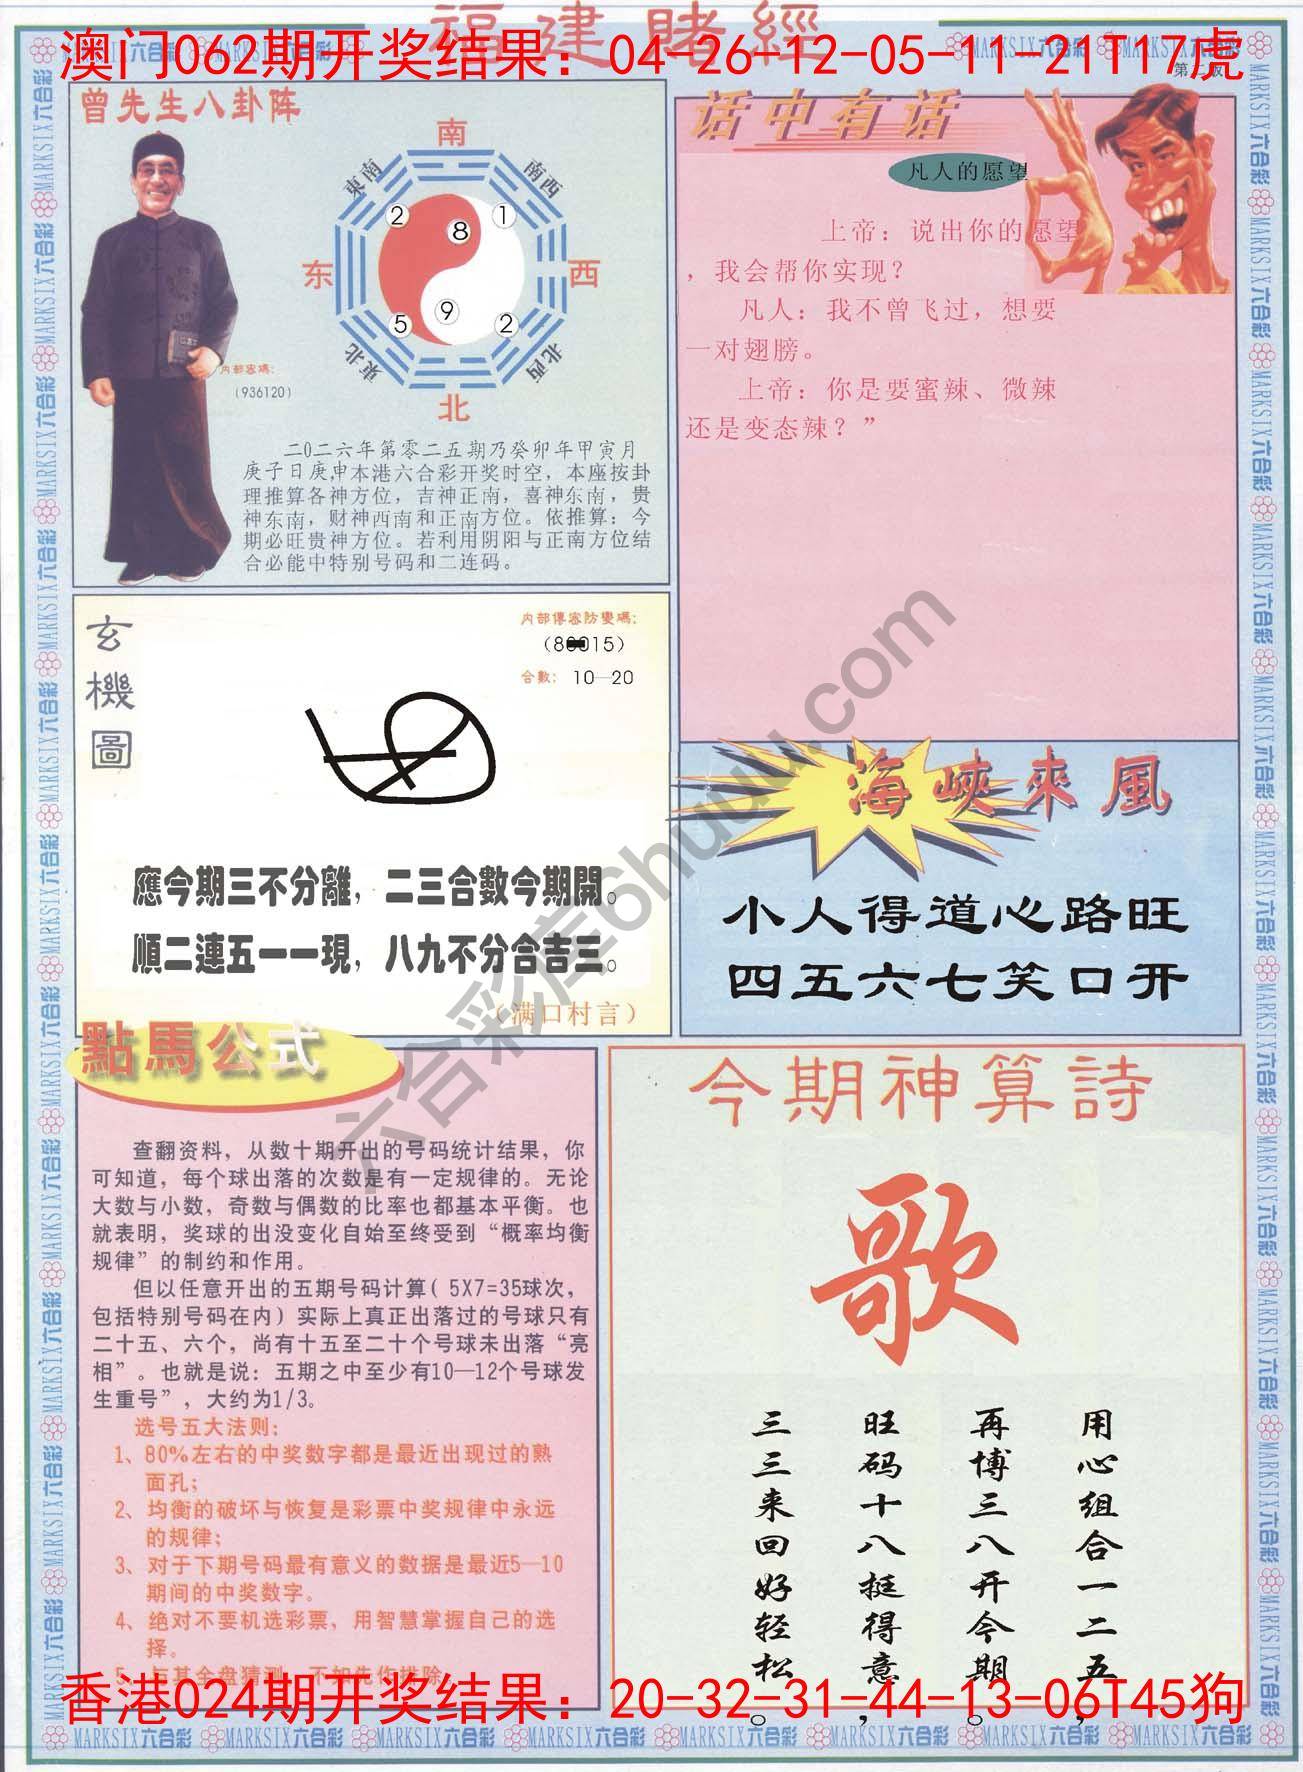 福建賭經
澳门062期开奖结果：04-26-12-05-11-21T17虎
第二版
曾先生八卦阵
南
東南
南西
2
8
1
东
西
5
9
2
東北
北西
北
内部密碼：
（936120）
二0二六年第零二五期乃癸卯年甲寅月
庚子日庚申本港六合彩开奖时空，本座按卦
理推算各神方位，吉神正南，喜神东南，贵
神东南，财神西南和正南方位。依推算：今
期必旺贵神方位。若利用阴阳与正南方位结
合必能中特别号码和二连码。
话中有话
凡人的愿望
上帝：说出你的愿望
，我会帮你实现？
凡人：我不曾飞过，想要
一对翅膀。
上帝：你是要蜜辣、微辣
还是变态辣？”
玄機圖
内部傳密防變碼：
合數：10—20
應今期三不分離，二三合數今期開。
順二連五一一現，八九不分合吉三。
（满口村言）
海峽來風
小人得道心路旺
四五六七笑口开
點馬公式
查翻资料，从数十期开出的号码统计结果，你
可知道，每个球出落的次数是有一定规律的。无论
大数与小数，奇数与偶数的比率也都基本平衡。也
就表明，奖球的出没变化自始至终受到“概率均衡
规律”的制约和作用。
但以任意开出的五期号码计算（5X7=35球次，
包括特别号码在内）实际上真正出落过的号球只有
二十五、六个，尚有十五至二十个号球未出落“亮
相”。也就是说：五期之中至少有10—12个号球发
生重号”，大约为1/3。
选号五大法则：
1、80%左右的中奖数字都是最近出现过的熟
面孔；
2、均衡的破坏与恢复是彩票中奖规律中永远
的规律；
3、对于下期号码最有意义的数据是最近5—10
期间的中奖数字。
4、绝对不要机选彩票，用智慧掌握自己的选
择。
5、与其全盘猜测，不如先作排除
今期神算詩
歌
用心组合一二五，
再博三八开今期。
旺码十八挺得意，
三三来回好轻松。
香港024期开奖结果：20-32-31-44-13-06T45狗
六合彩库6huuu.com
MARKSIX六合彩